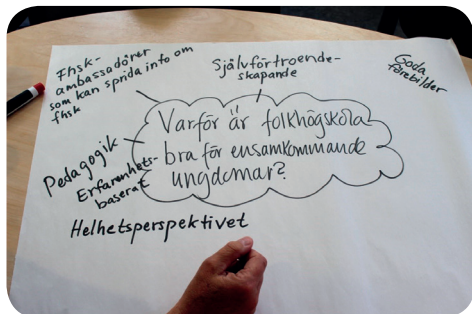 Fhsk-
ambassadörer
som kan sprida info om
fhsk
Självförtroende-
skapande
Goda
förebilder
Varför är folkhögskola
bra för ensamkommande
ungdomar?
Pedagogik
Erfarenhets-
baserat
Helhetsperspektivet